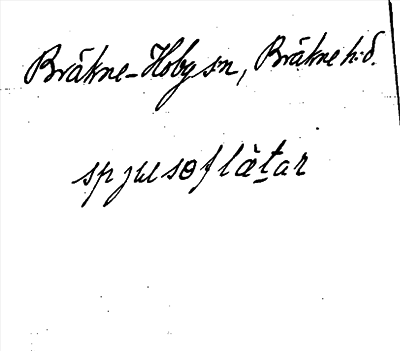 Bräkne-Hoby sn, Bräkne h:d.
spjusɵflàṯar